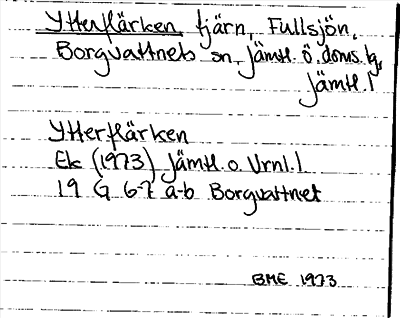 Ytterflärken, tjärn, Fullsjön,
Borgvattnets sn, Jämtl. ö. doms. tg,
Jämtl. l
Ytterflärken
Ek (1973) Jämtl. o. Vrnl. l
19 G 6-7 a-b Borgvattnet
BME 1973